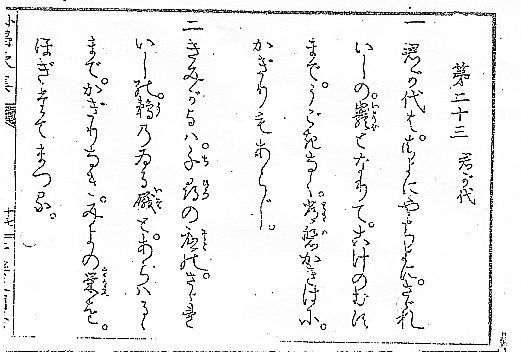 第二十三 君が代
一 君が代は。ちよにやちよに。さゞれ
いしの巌となりて。こけのむす
まで。うごきなく。常磐かきはに。
かぎりもあらじ。
二 きみがよは。千尋の底の。さゞれ
いしの鵜のゐる磯と。あらはるゝ
まで。かぎりなき。みよの栄を。
ほぎたてまつる。